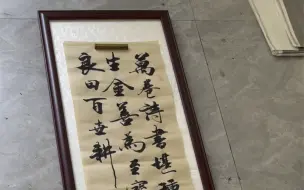 萬卷詩書
生金善為至寶
良田百世耕